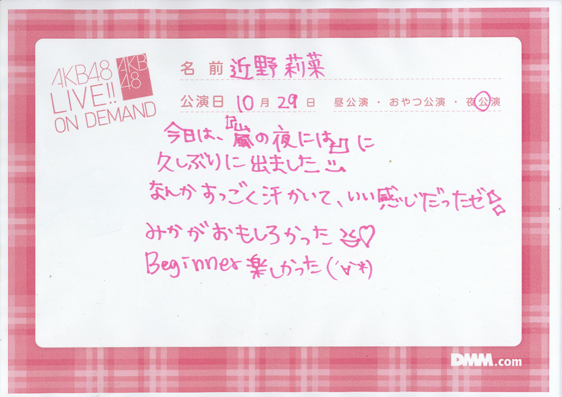 AKB48
LIVE!!
ON DEMAND
AKB
48
名前 近野莉菜
公演日 10月29日 昼公演・おやつ公演・夜公演
今日は、『嵐の夜には』に
久しぶりに出ました
なんかすっごく汗かいて、いい感じだったゼ☆
みかがおもしろかった♡
Beginner楽しかった(´∀`*)
DMM.com